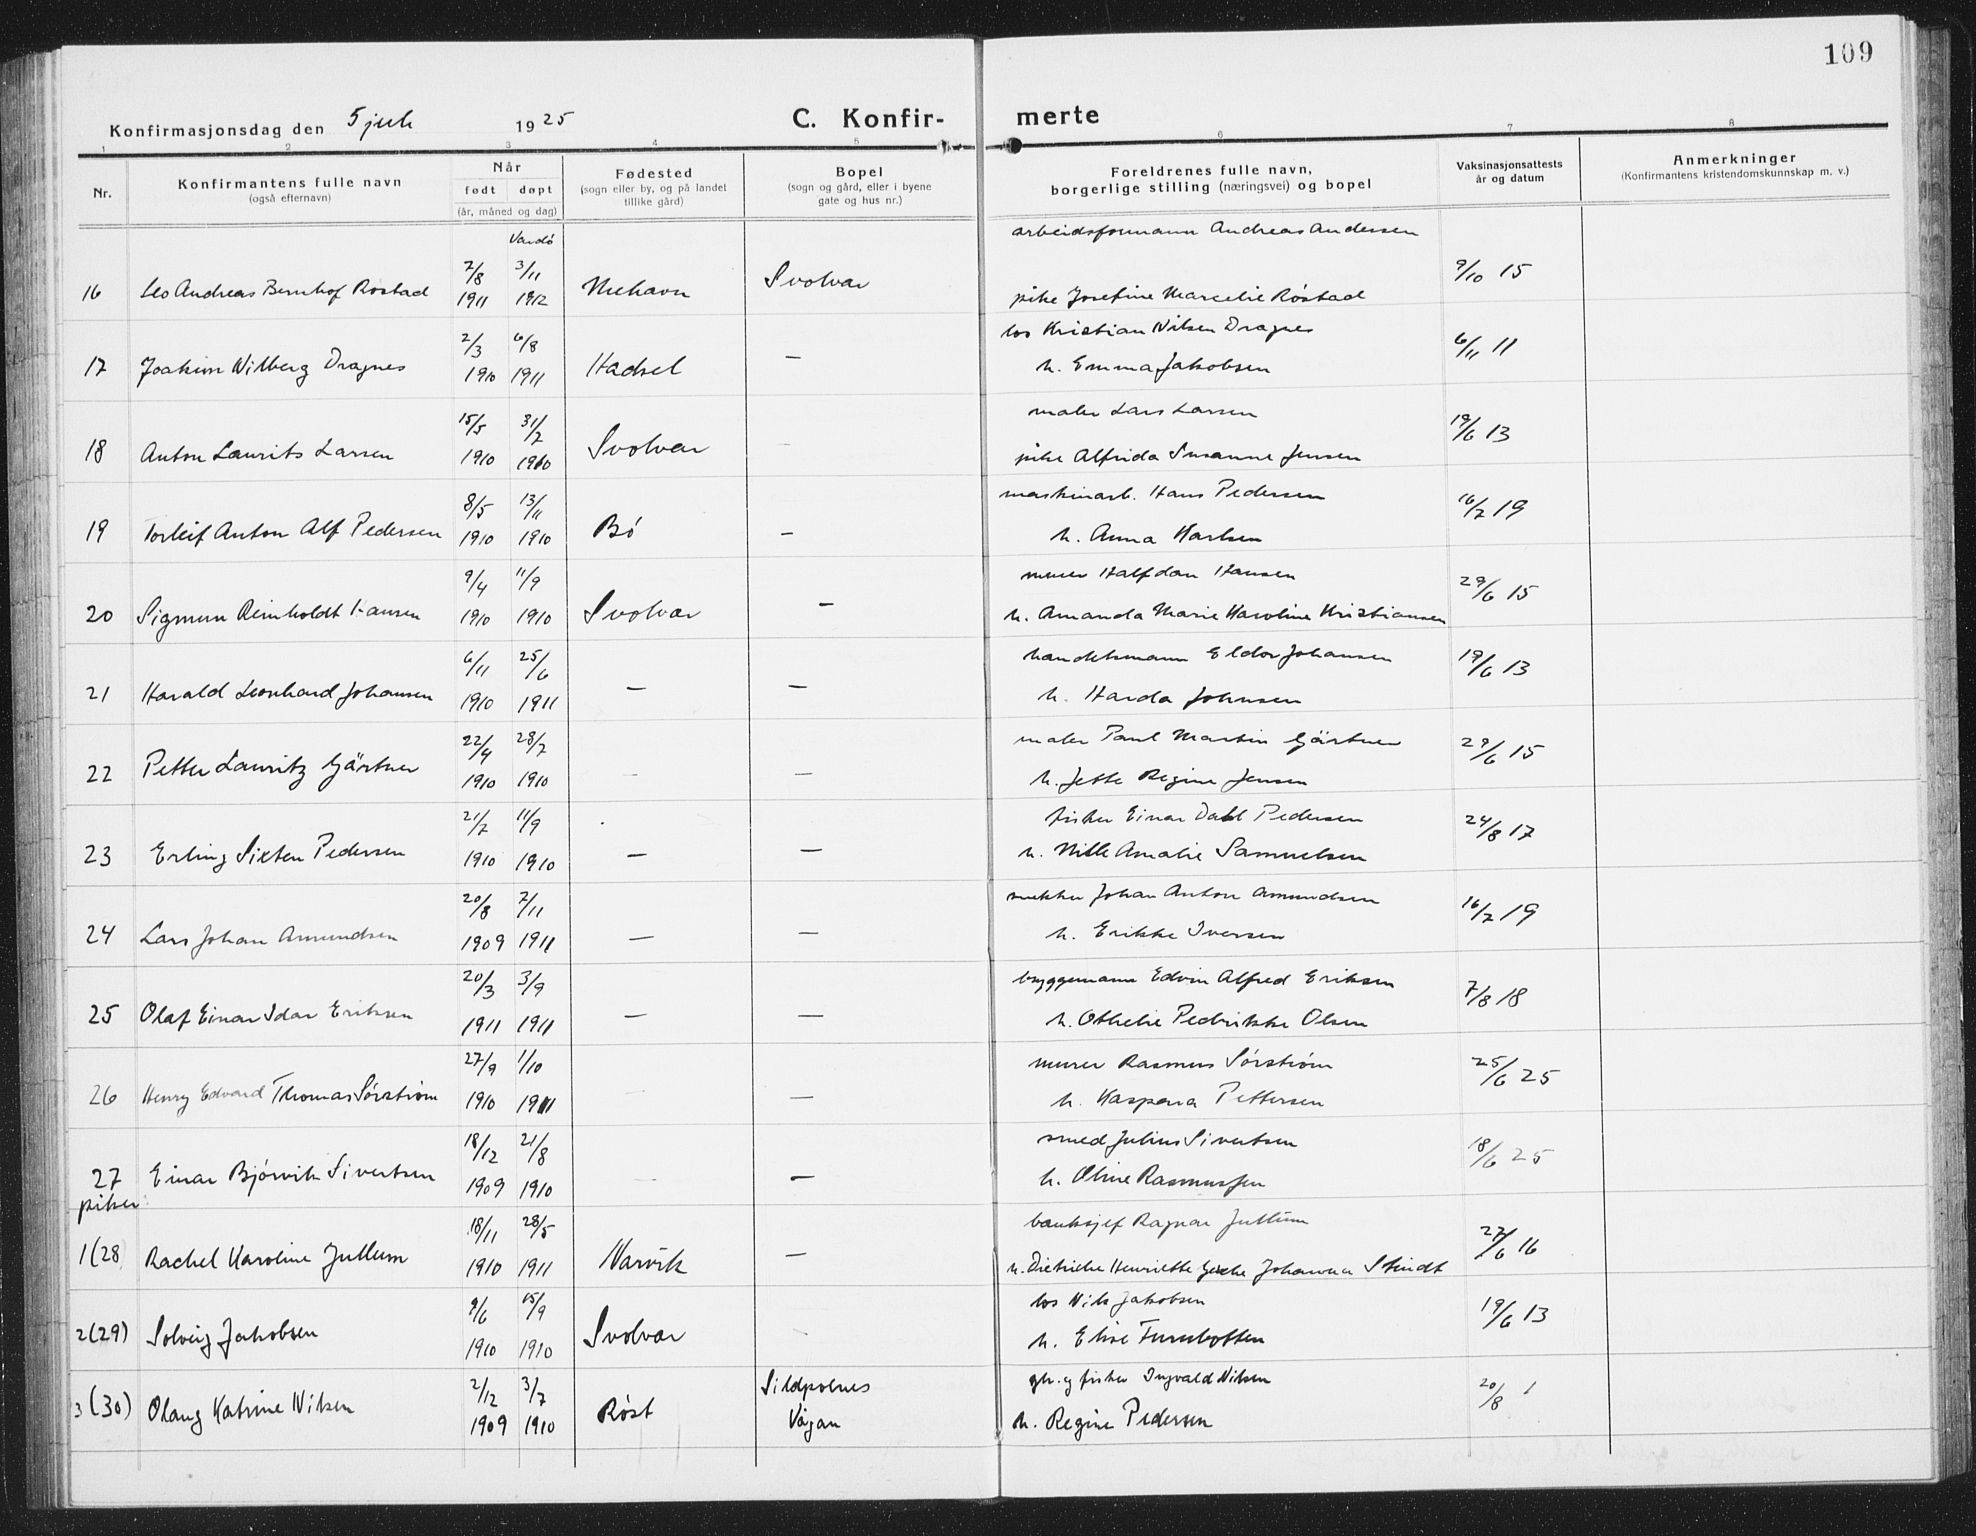 109
Konfirmasjonsdag den 5 juli 1925
C. Konfir- merte
1 2 3 4 5 6 7 8
Nr.
Konfirmantens fulle navn
(også efternavn)
Når
født døpt
(år, måned og dag)
Fødested
(sogn eller by, og på landet
tillike gård)
Bopel
(sogn og gård, eller i byene
gate og hus nr.)
Foreldrenes fulle navn,
borgerlige stilling (næringsvei) og bopel
Vaksinasjonsattests
år og datum
Anmerkninger
(Konfirmantens kristendomskunnskap m. v.)
Vardø arbeidsformann Andreas Andersen
16 Leo Andreas Bernhof Røstad 7/8 1911 3/11 1912 Mehavn Svolvær 9/10 15
pike Josefine Marcelie Røstad
los Kristian Nilsen Dragnes
17 Joakim Wilberg Dragnes 2/3 1910 6/8 1911 Hadsel — 6/11 11
h. Emma Jakobsen
maler Lars Larsen
18 Anton Laurits Larsen 15/5 1910 31/7 1910 Svolvær — 19/6 13
pike Alfrida Susanne Jensen
maskinarb. Hans Pedersen
19 Torleif Anton Alf Pedersen 8/5 1910 13/11 1910 Bø — 16/7 19
h. Anna Karlsen
murer Halfdan Hansen
20 Sigmun Reinholdt Hansen 9/4 1910 11/9 1910 Svolvær — 29/6 15
h. Amanda Marie Karoline Kristiansen
handelsmann Eldor Johansen
21 Harald Leonhard Johansen 6/11 1910 25/6 1911 — — 19/6 13
h. Harda Johnsen
maler Paul Martin Gärtner
22 Petter Lauritz Gärtner 22/4 1910 28/7 1910 — — 29/6 15
h. Jette Regine Jensen
fisker Einar Dahl Pedersen
23 Erling Sixten Pedersen 21/7 1910 11/9 1910 — — 24/8 17
h. Nille Amalie Samuelsen
snekker Johan Anton Amundsen
24 Lars Johan Amundsen 20/8 1909 7/11 1911 — — 16/7 19
h. Erikke Iversen
byggemann Edvin Alfred Eriksen
25 Olaf Einar Idar Eriksen 20/3 1911 3/9 1911 — — 7/8 18
h. Othelie Pedrikke Olsen
murer Rasmus Sørstrøm
26 Henry Edvard Thomas Sørstrøm 27/9 1910 1/10 1911 — — 25/6 25
h. Kaspara Pettersen
smed Julius Sivertsen
27 Einar Bjørvik Sivertsen 18/12 1909 21/8 1910 — — 18/6 25
h. Oline Rasmussen
piker
banksjef Ragnar Jullum
1(28) Rachel Karoline Jullum 18/11 1910 28/5 1911 Narvik — 27/6 16
h. Dietriche Henriette Gesche Johanna Stindt
los Nils Jakobsen
2(29) Solveig Jakobsen 9/6 1910 15/9 1910 Svolvær — 19/6 13
h. Elise Furuhoften
gbr. og fisker Ingvald Nilsen
3(30) Olaug Katrine Nilsen 2/12 1909 3/7 1910 Røst Sildpolnes Vågan 20/8 1
h. Regine Pedersen